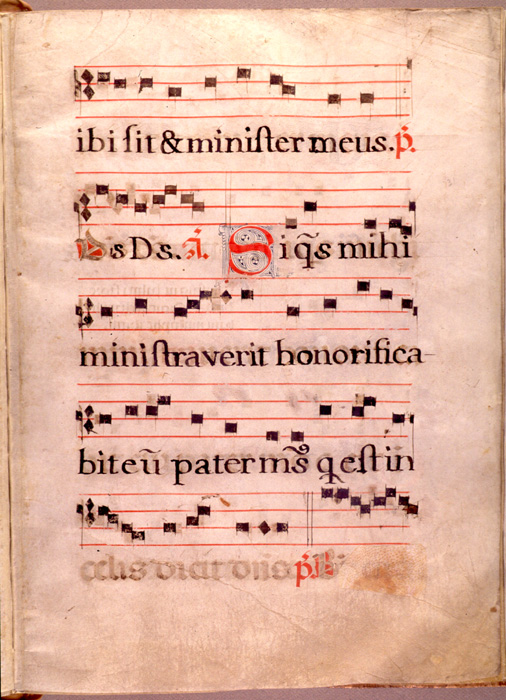 ibi sit & minister meus. p̄.
Ds Ds. A. Si q̄s mihi
ministraverit honorifica-
bit eū pater ms̄ q est in
celis dicit dn̄s p̄.